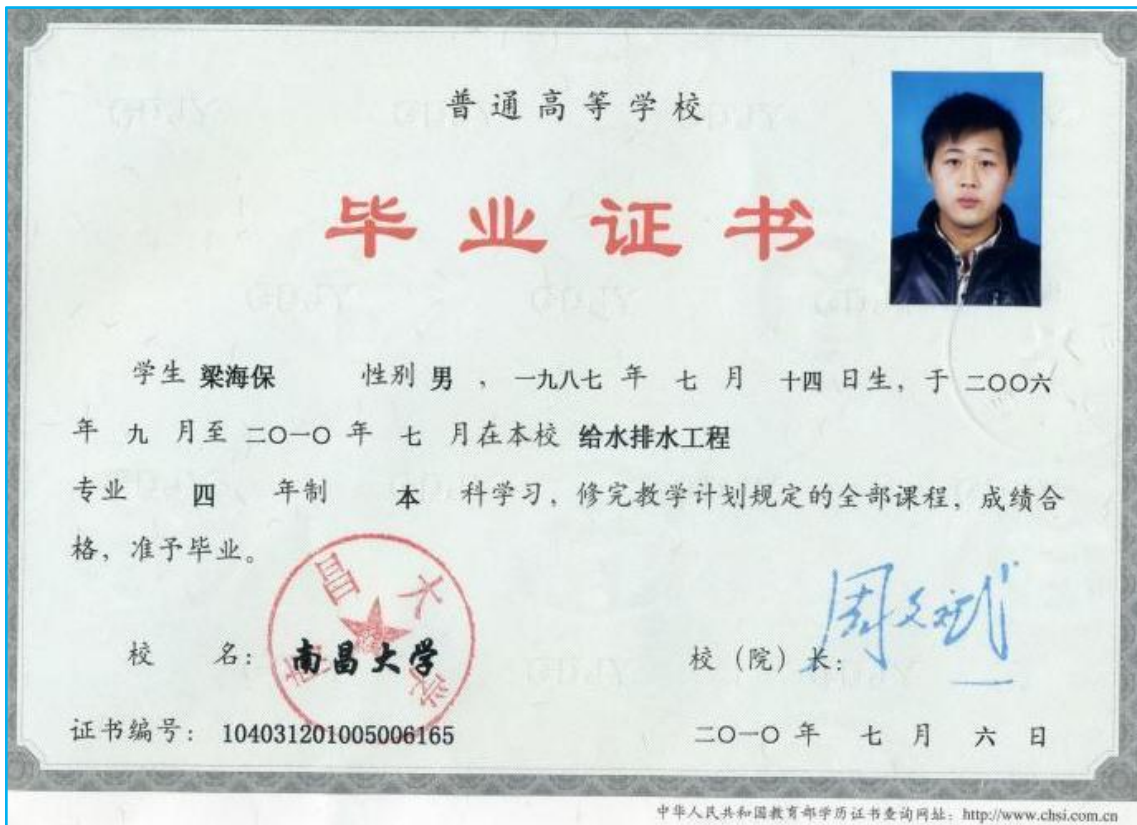 普通高等学校
毕业证书
学生 梁海保 性别 男 ，一九八七 年 七 月 十四 日生，于 二〇〇六
年 九 月至 二〇一〇 年 七 月在本校 给水排水工程
专业 四 年制 本 科学习，修完教学计划规定的全部课程，成绩合
格，准予毕业。
校 名：南昌大学
校（院）长：周文斌
证书编号：104031201005006165
二〇一〇 年 七 月 六 日
中华人民共和国教育部学历证书查询网址：http://www.chsi.com.cn